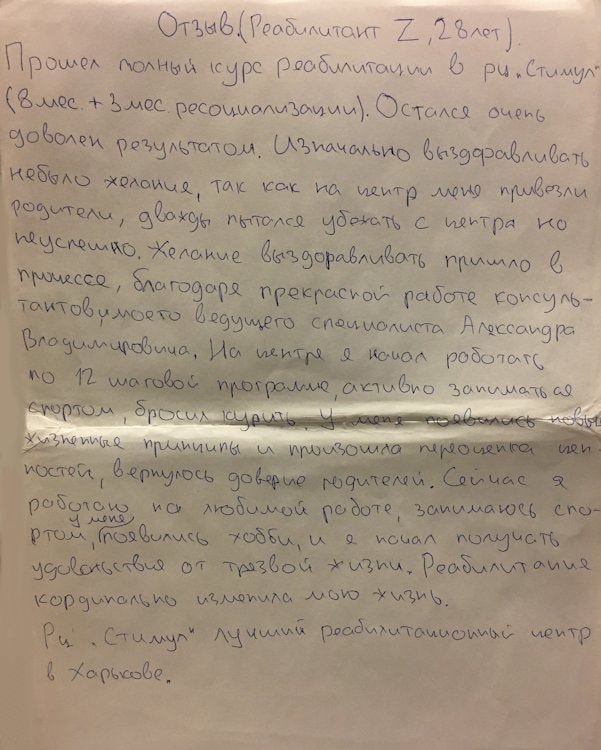 Отзыв.(Реабилитант Z, 28 лет).
Прошел полный курс реабилитации в рц „Стимул“
(8 мес + 3 мес. ресоциализации). Остался очень
доволен результатом. Изначально выздоравливать
небыло желание, так как на центр меня привезли
родители, дважды пытался убежать с центра но
неуспешно. Желание выздоравливать пришло в
процессе, благодаря прекрасной работе консуль-
тантов, моего ведущего специалиста Александра
Владимировича. На центре я начал работать
по 12 шаговой программе, активно заниматься
спортом, бросил курить. У меня появились новые
жизненные принципы и произошла переоценка цен-
ностей, вернулось доверие родителей. Сейчас я
работаю на любимой работе, занимаюсь спо-
ртом, у меня появились хобби, и я начал получать
удовольствия от трезвой жизни. Реабилитация
кординально изменила мою жизнь.
Рц „Стимул“ лучший реабилитационный центр
в Харькове.